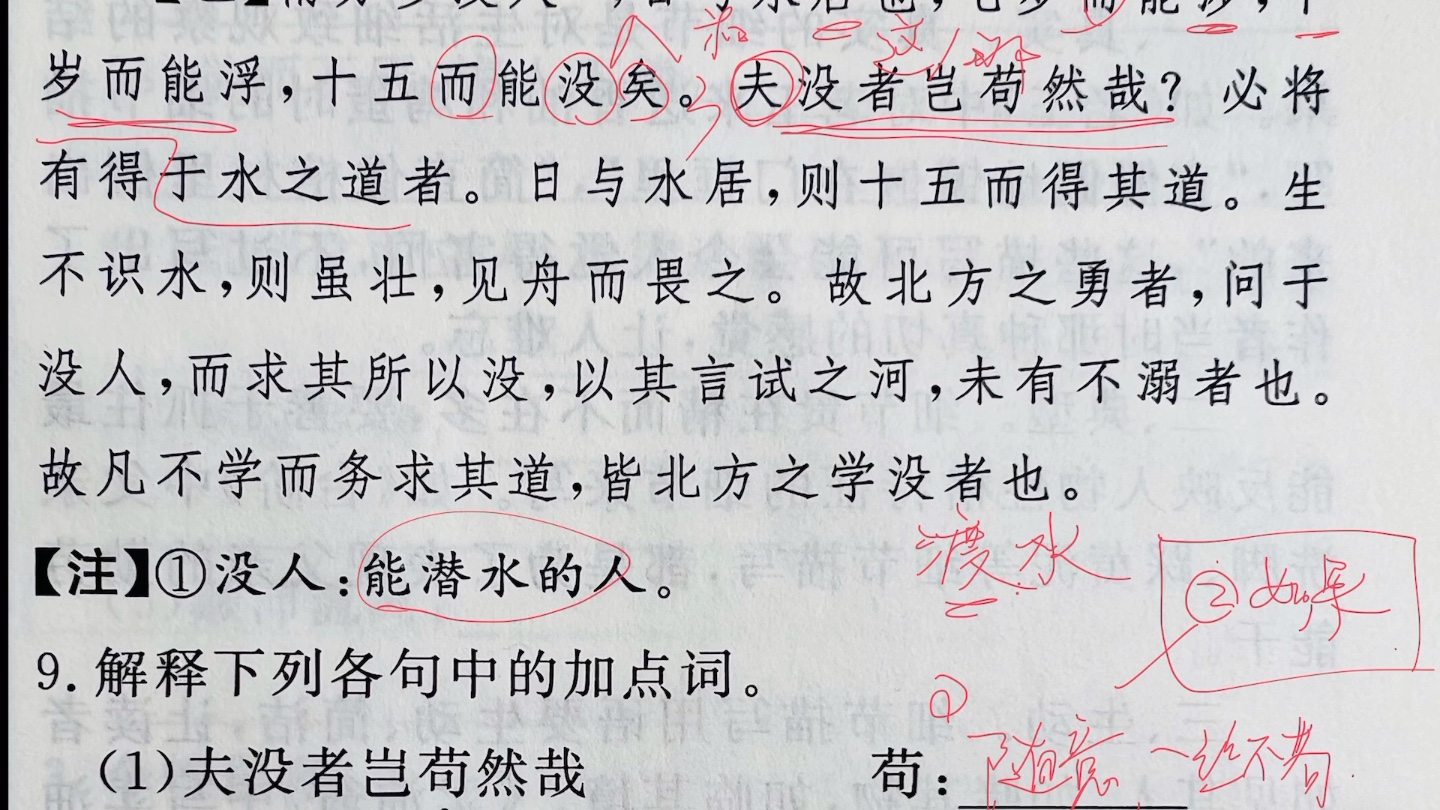 岁而能浮,十五而能没矣。夫没者岂苟然哉?必将
有得于水之道者。日与水居,则十五而得其道。生
不识水,则虽壮,见舟而畏之。故北方之勇者,问于
没人,而求其所以没,以其言试之河,未有不溺者也。
故凡不学而务求其道,皆北方之学没者也。
【注】①没人:能潜水的人。
渡水
②如果
9.解释下列各句中的加点词。
①
(1)夫没者岂苟然哉 苟:随意 一丝不苟